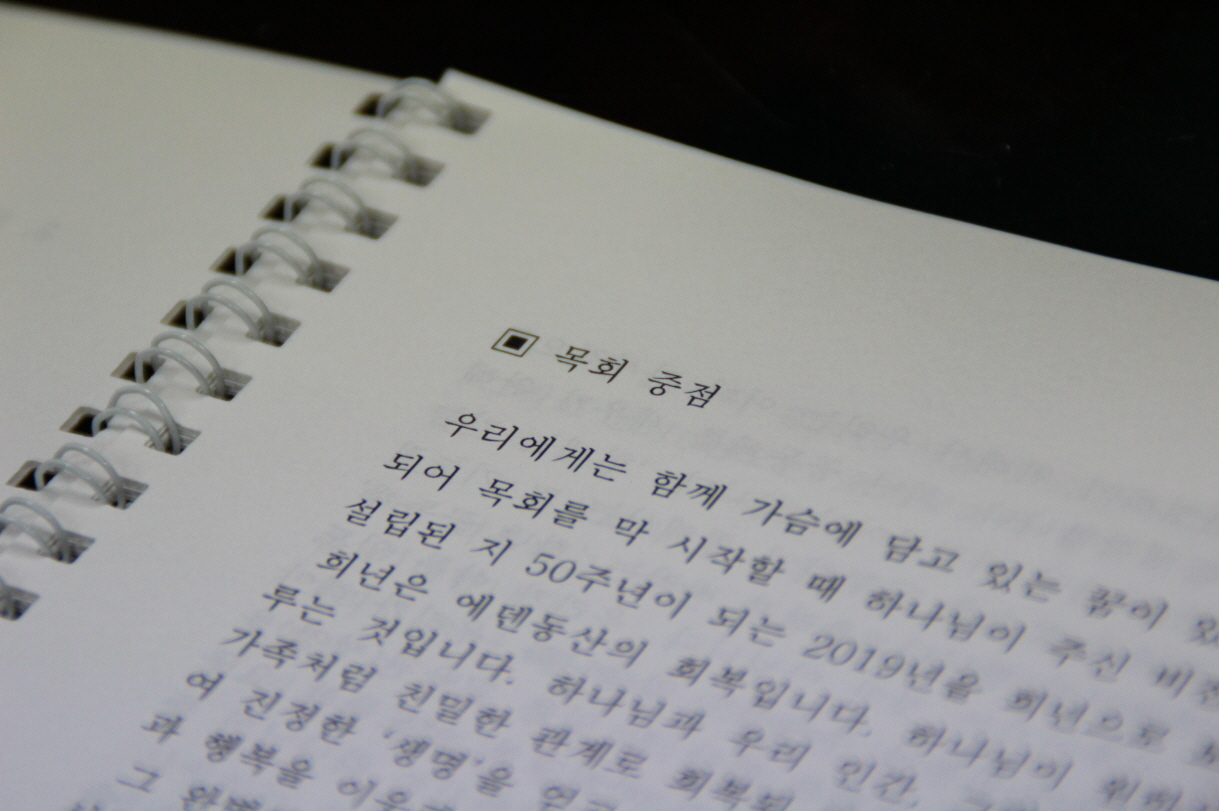 ▣ 목회 중점
우리에게는 함께 가슴에 담고 있는 꿈이
되어 목회를 막 시작할 때 하나님이 주신
설립된 지 50주년이 되는 2019년을 희년으로
희년은 에덴동산의 회복입니다. 하나님이
루는 것입니다. 하나님과 우리 인간,
가족처럼 친밀한 관계로 회복된
여 진정한 '생명'을 얻고
과 행복을
그